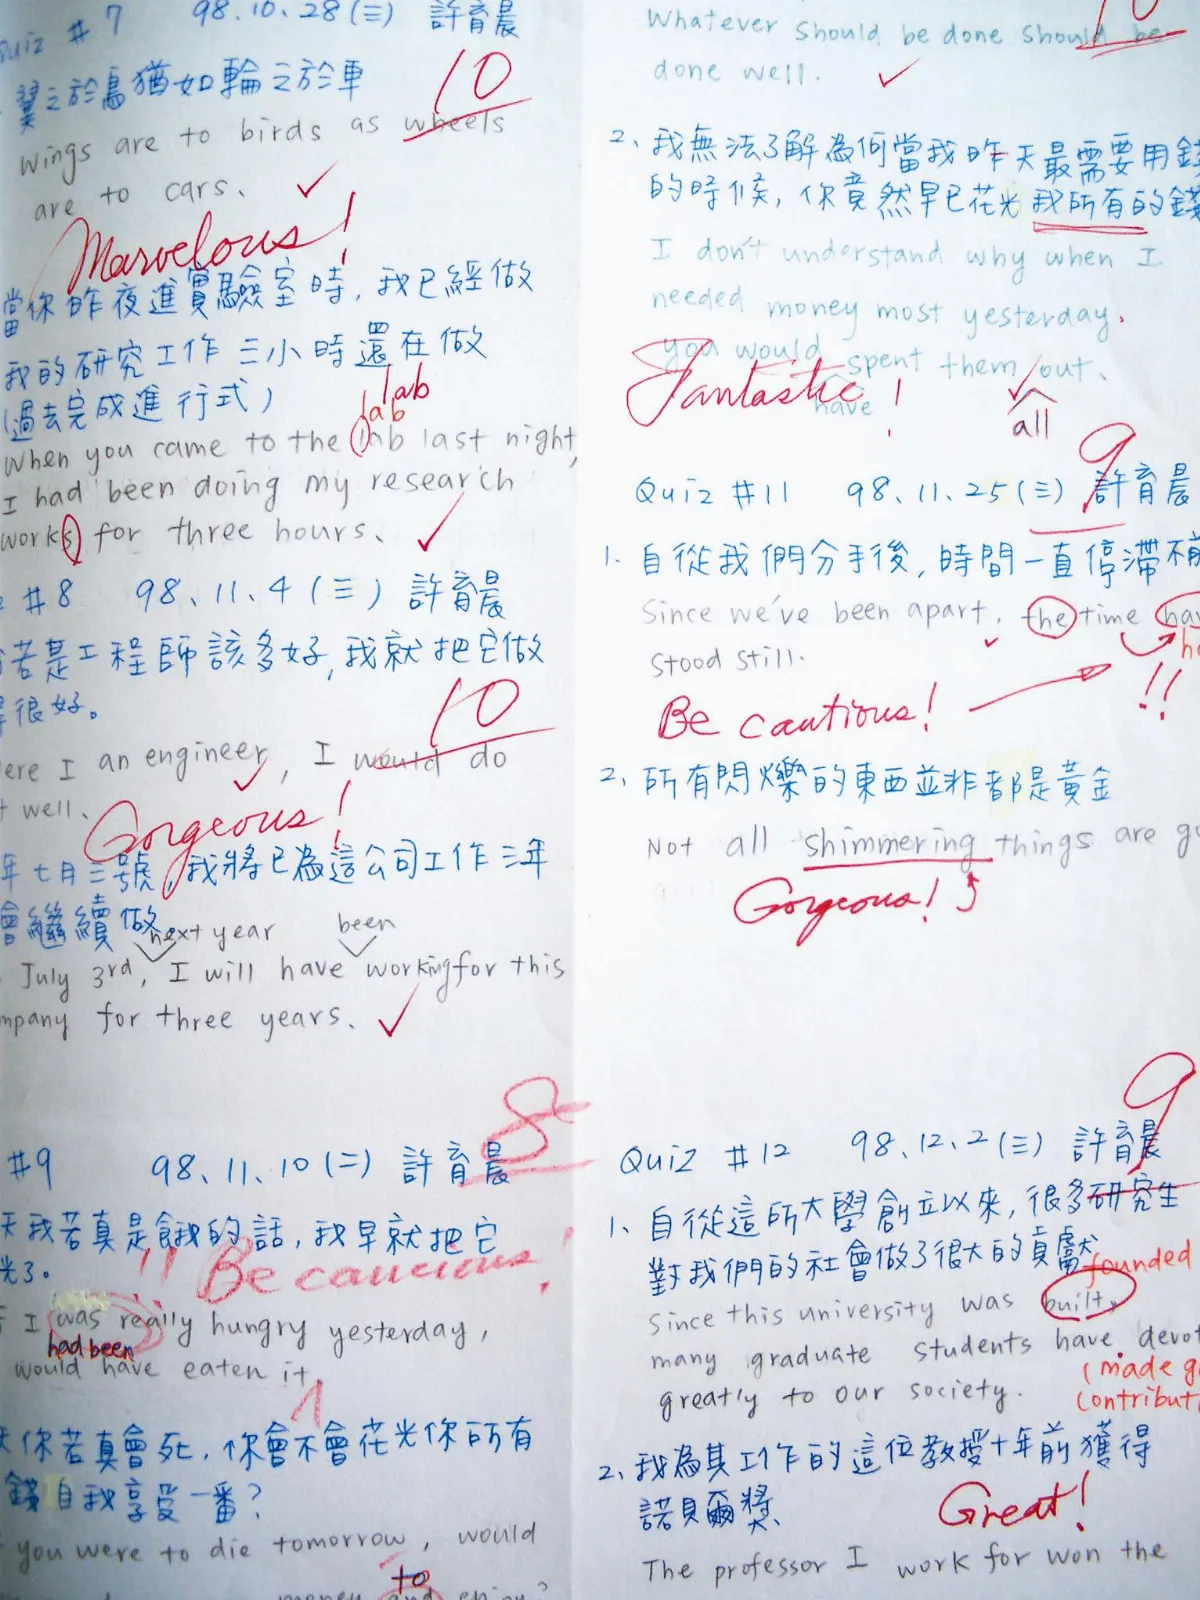 Quiz # 7 98.10、28(三) 許育晨
10
翼之於鳥猶如輪之於車
wings are to birds as wheels
are to cars、
Marvelous!
當你昨夜進實驗室時, 我已經做
我的研究工作三小時還在做
(過去完成進行式)
lab
lab
When you came to the lab last night,
I had been doing my research
works for three hours、
#8 98、11、4(三) 許育晨
若是工程師該多好, 我就把它做
很好。
10
I an engineer, I would do
well、
Gorgeous!
年七月三號, 我將已為這公司工作三年
會繼續做
next year been
July 3rd, I will have working for this
for three years、
8
#9 98、11、10(二) 許育晨
天我若真是餓的話, 我早就把它
光了。
!! Be cautious!
I was really hungry yesterday,
had been
would have eaten it、
你若真會死, 你會不會花光你所有
錢自我享受一番?
you were to die tomorrow, would
to
money and enjoy?
10
Whatever should be done should be
done well.
2、我無法了解為何當我昨天最需要用錢
的時候, 你竟然早已花光我所有的錢
I don't understand why when I
needed money most yesterday.
you would spent them out、
have
all
Fantastic!
9
Quiz #11 98、11、25(三) 許育晨
1、自從我們分手後, 時間一直停滯不前
Since we've been apart, the time
stood still.
Be cautious! !!
2、所有閃爍的東西並非都是黃金
Not all shimmering things are
Gorgeous!
9
Quiz #12 98、12、2(三) 許育晨
1、自從這所大學創立以來, 很多研究生
對我們的社會做了很大的貢獻
founded
Since this university was built,
many graduate students have
(made
greatly to our society.
2、我為其工作的這位教授十年前獲得
諾貝爾獎、
Great!
The professor I work for won the